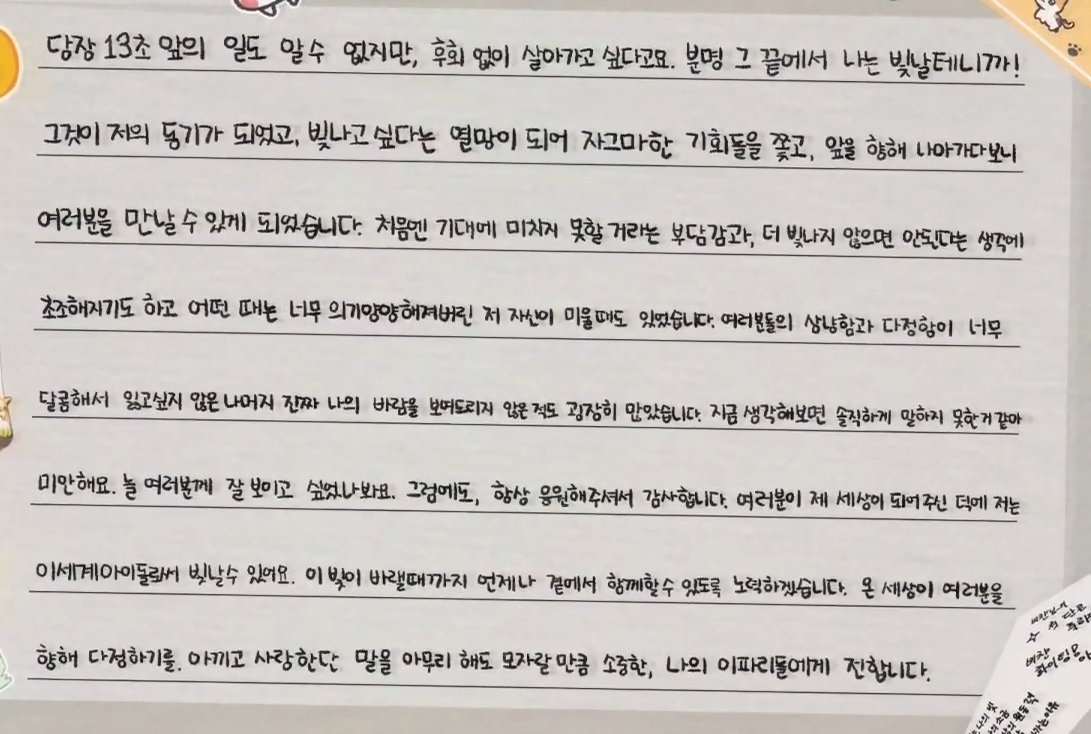 당장 13초 앞의 일도 알 수 없지만, 후회 없이 살아가고 싶다고요. 분명 그 끝에서 나는 빛날테니까!
그것이 저의 동기가 되었고, 빛나고 싶다는 열망이 되어 자그마한 기회들을 쫓고, 앞을 향해 나아가다보니
여러분을 만날 수 있게 되었습니다. 처음엔 기대에 미치지 못할 거라는 부담감과, 더 빛나지 않으면 안된다는 생각에
초조해지기도 하고 어떤 때는 너무 의기양양해져버린 저 자신이 미울때도 있었습니다. 여러분들의 상냥함과 다정함이 너무
달콤해서 잃고싶지 않은 나머지 진짜 나의 바람을 보여드리지 않은 적도 굉장히 많았습니다. 지금 생각해보면 솔직하게 말하지 못한거 같아
미안해요. 늘 여러분께 잘 보이고 싶었나봐요. 그럼에도, 항상 응원해주셔서 감사합니다. 여러분이 제 세상이 되어주신 덕에 저는
이세계아이돌로써 빛날수 있어요. 이 빛이 바랠때까지 언제나 곁에서 함께할 수 있도록 노력하겠습니다. 온 세상이 여러분을
향해 다정하기를. 아끼고 사랑한단 말을 아무리 해도 모자랄 만큼 소중한, 나의 이파리들에게 전합니다.